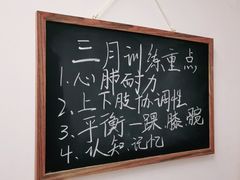 三月训练重点
1、心肺耐力
2、上下肢协调性
3、平衡—踝、膝、髋
4、认知、记忆